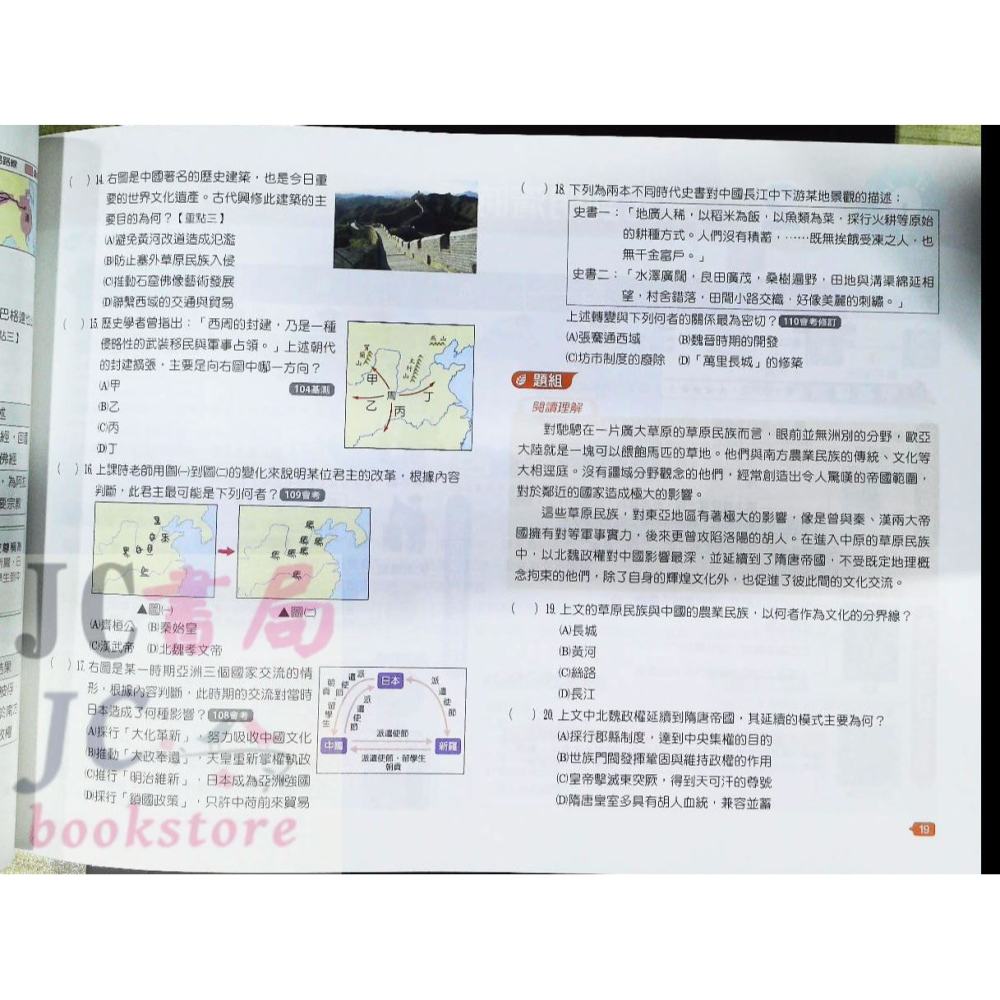 ( ) 14. 右圖是中國著名的歷史建築，也是今日重
要的世界文化遺產。古代興修此建築的主
要目的為何？【重點三】
(A)避免黃河改道造成氾濫
(B)防止塞外草原民族入侵
(C)推動石窟佛像藝術發展
(D)聯繫西域的交通與貿易
( ) 15. 歷史學者曾指出：「西周的封建，乃是一種
侵略性的武裝移民與軍事占領。」上述朝代
的封建擴張，主要是向右圖中哪一方向？
(A)甲
104基測
(B)乙
(C)丙
(D)丁
甲
乙
周
丙
丁
( ) 16. 上課時老師用圖㈠到圖㈡的變化來說明某位君主的改革，根據內容
判斷，此君主最可能是下列何者？ 109會考
▲圖㈠
▲圖㈡
(A)齊桓公 (B)秦始皇
(C)漢武帝 (D)北魏孝文帝
( ) 17. 右圖是某一時期亞洲三個國家交流的情
形，根據內容判斷，此時期的交流對當時
日本造成了何種影響？ 108會考
(A)採行「大化革新」，努力吸收中國文化
(B)推動「大政奉還」，天皇重新掌權執政
(C)推行「明治維新」，日本成為亞洲強國
(D)採行「鎖國政策」，只許中荷前來貿易
日本
派遣使節
派使節
中國
派遣使節
新羅
派遣使節、留學生
朝貢
( ) 18. 下列為兩本不同時代史書對中國長江中下游某地景觀的描述：
史書一：「地廣人稀，以稻米為飯，以魚類為菜，採行火耕等原始
的耕種方式。人們沒有積蓄，……既無挨餓受凍之人，也
無千金富戶。」
史書二：「水澤廣闊，良田廣茂，桑樹遍野，田地與溝渠綿延相
望，村舍錯落，田間小路交織，好像美麗的刺繡。」
上述轉變與下列何者的關係最為密切？ 110會考修訂
(A)張騫通西域 (B)魏晉時期的開發
(C)坊市制度的廢除 (D)「萬里長城」的修築
題組
閱讀理解
對馳騁在一片廣大草原的草原民族而言，眼前並無洲別的分野，歐亞
大陸就是一塊可以餵飽馬匹的草地。他們與南方農業民族的傳統、文化等
大相逕庭。沒有疆域分野觀念的他們，經常創造出令人驚嘆的帝國範圍，
對於鄰近的國家造成極大的影響。
這些草原民族，對東亞地區有著極大的影響，像是曾與秦、漢兩大帝
國擁有對等軍事實力，後來更曾攻陷洛陽的胡人。在進入中原的草原民族
中，以北魏政權對中國影響最深，並延續到了隋唐帝國，不受既定地理概
念拘束的他們，除了自身的輝煌文化外，也促進了彼此間的文化交流。
( ) 19. 上文的草原民族與中國的農業民族，以何者作為文化的分界線？
(A)長城
(B)黃河
(C)絲路
(D)長江
( ) 20. 上文中北魏政權延續到隋唐帝國，其延續的模式主要為何？
(A)採行郡縣制度，達到中央集權的目的
(B)世族門閥發揮鞏固與維持政權的作用
(C)皇帝擊滅東突厥，得到天可汗的尊號
(D)隋唐皇室多具有胡人血統，兼容並蓄
19
JC書局
JC
bookstore